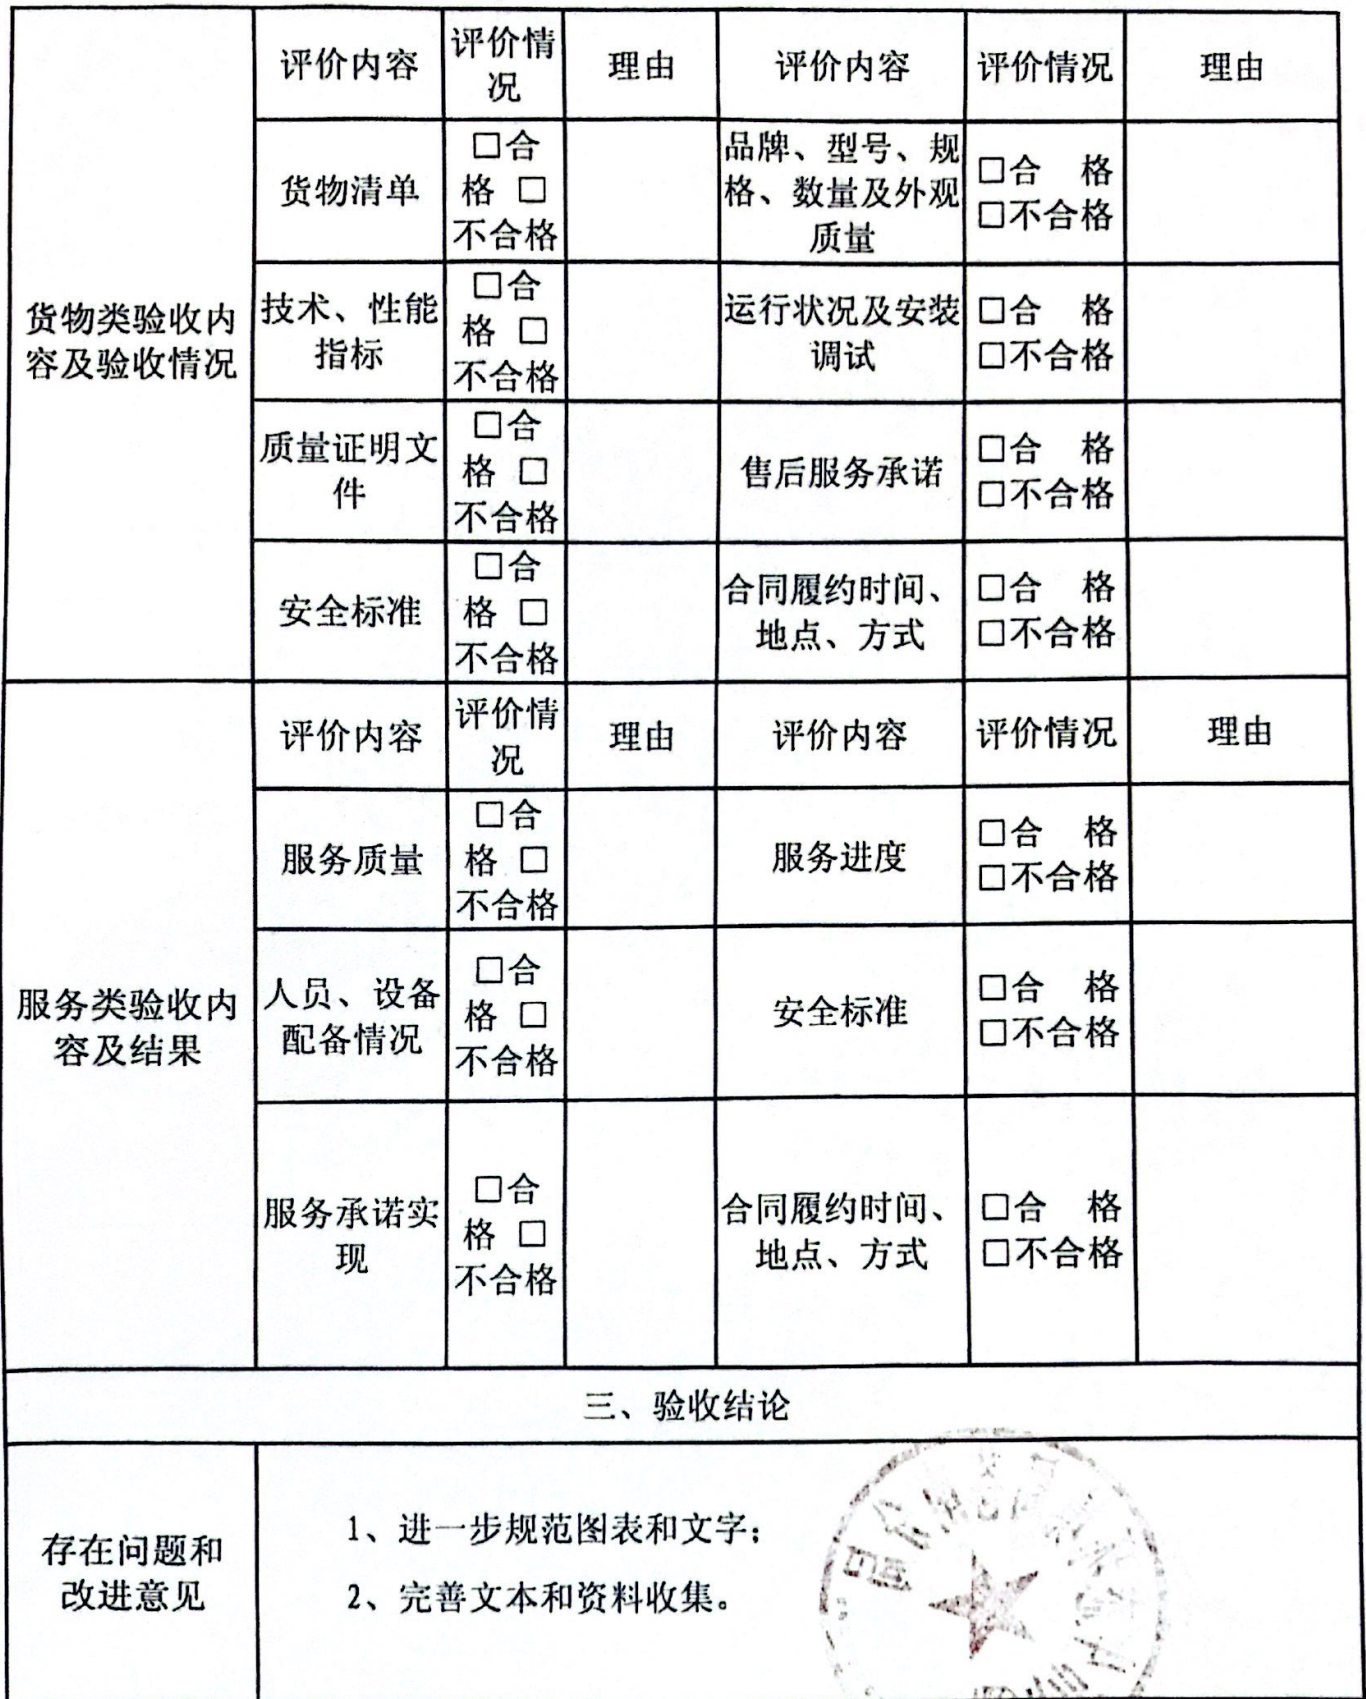 评价内容 评价情况 理由 评价内容 评价情况 理由
货物类验收内容及验收情况
货物清单 □合格 □不合格 品牌、型号、规格、数量及外观质量 □合 格 □不合格
技术、性能指标 □合格 □不合格 运行状况及安装调试 □合 格 □不合格
质量证明文件 □合格 □不合格 售后服务承诺 □合 格 □不合格
安全标准 □合格 □不合格 合同履约时间、地点、方式 □合 格 □不合格
评价内容 评价情况 理由 评价内容 评价情况 理由
服务类验收内容及结果
服务质量 □合格 □不合格 服务进度 □合 格 □不合格
人员、设备配备情况 □合格 □不合格 安全标准 □合 格 □不合格
服务承诺实现 □合格 □不合格 合同履约时间、地点、方式 □合 格 □不合格
三、验收结论
存在问题和改进意见
1、进一步规范图表和文字；
2、完善文本和资料收集。